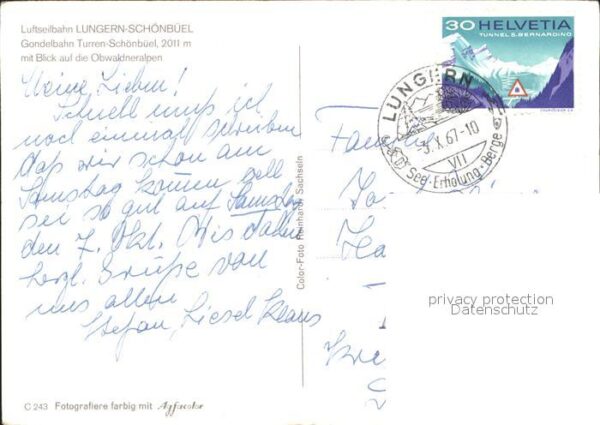 Luftseilbahn LUNGERN-SCHÖNBÜEL
Gondelbahn Turren-Schönbüel, 2011 m
mit Blick auf die Obwaldneralpen
Meine Lieben!
Schnell muß ich
noch einmal schreiben
daß wir schon am
Samstag kommen gell
sei so gut auf Samstag
den 7. Okt. Bis dahin
herzl. Grüße von
uns allen
Stefan, Liesel Klaus
C 243 Fotografiere farbig mit Agfacolor
Color-Foto Reinhard Sachseln
30 HELVETIA
TUNNEL S. BERNARDINO
LUNGERN
-3.X.67-10
VII
See · Erholung · Berge
Fam
privacy protection
Datenschutz